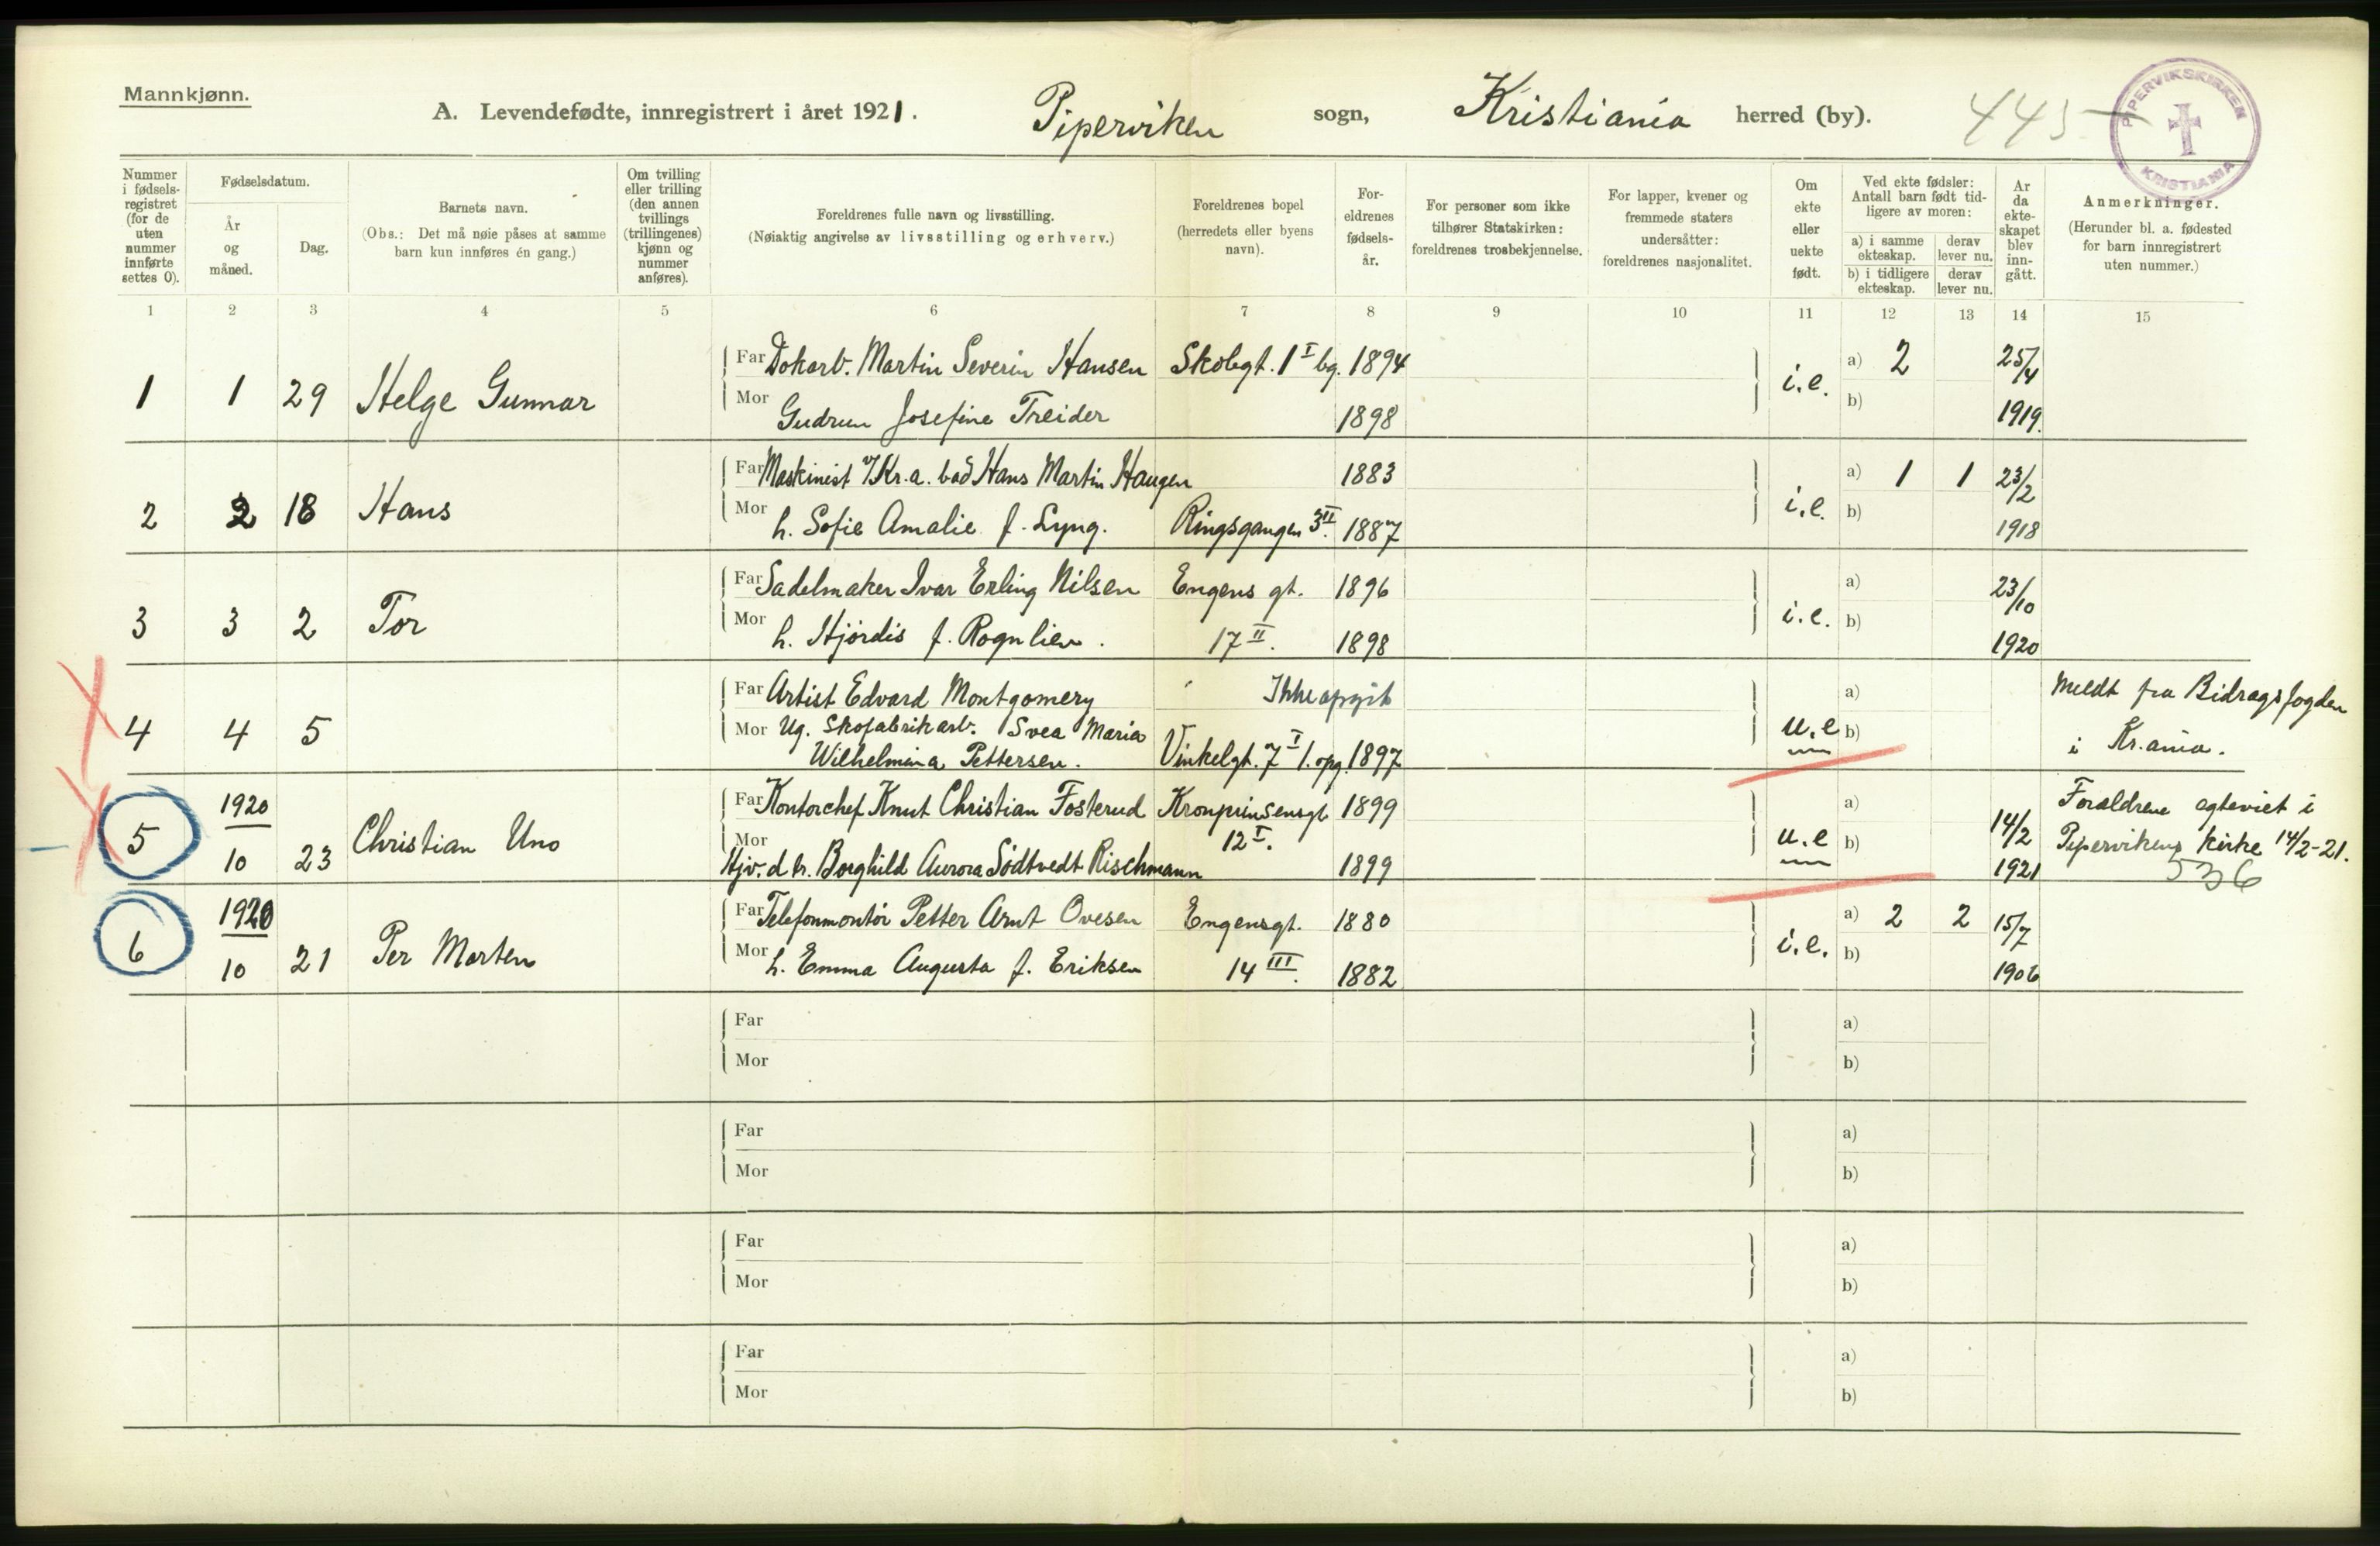 Mannkjønn.
A. Levendefødte, innregistrert i året 1921. Piperviken sogn, Kristiania herred (by). 445
PIPERVIKSKIRKEN KRISTIANIA
Nummer i fødsels-registret (for de uten nummer innførte settes 0).
Fødselsdatum.
År og måned.
Dag.
Barnets navn.
(Obs.: Det må nøie påses at samme barn kun innføres én gang.)
Om tvilling eller trilling (den annen tvillings (trillingenes) kjønn og nummer anføres).
Foreldrenes fulle navn og livsstilling.
(Nøiaktig angivelse av livsstilling og erhverv.)
Foreldrenes bopel (herredets eller byens navn).
For-eldrenes fødsels-år.
For personer som ikke tilhører Statskirken: foreldrenes trosbekjennelse.
For lapper, kvener og fremmede staters undersåtter: foreldrenes nasjonalitet.
Om ekte eller uekte født.
Ved ekte fødsler: Antall barn født tid-ligere av moren:
a) i samme ekteskap. derav lever nu.
b) i tidligere ekteskap. derav lever nu.
Ar da ekte-skapet blev inn-gått.
Anmerkninger.
(Herunder bl. a. fødested for barn innregistrert uten nummer.)
1 2 3 4 5 6 7 8 9 10 11 12 13 14 15
1 1 29 Helge Gunnar Far Dokarb. Martin Severin Hansen Skolegt. 1 I bg. 1894 i.e. a) 2 25/4
Mor Gudrun Josefine Treider 1898 b) 1919.
2 2 18 Hans Far Maskinist v/Kr.a. bad Hans Martin Haugen 1883 i.e. a) 1 1 23/2
Mor h. Sofie Amalie f. Lyng. Ringsgangen 3 II. 1887 b) 1918
3 3 2 Tor Far Sadelmaker Ivar Erling Nilsen Engens gt. 1896 i.e. a) 23/10
Mor h. Hjördis f. Rognlien. 17 II. 1898 b) 1920
4 4 5 Far Artist Edvard Montgomery Ikke opgit u.e a) Meldt fra Bidragsfogden
Mor Ug. Skofabrikarb. Svea Maria b) i Kr.ania.
Wilhelmina Pettersen. Vinkelgt. 7 I 1. opg. 1897
5 1920 Christian Uno Far Kontorchef Knut Christian Fosterud Kronprinsensgt 1899 u.e a) 14/2 Forældrene egteviet i
10 23 Mor 12 I. b) Pipervikens kirke 14/2-21.
Hjv. d tr. Borghild Aurora Södtvedt Rischmann 1899 1921 536
6 1920 Per Morten Far Telefonmontör Petter Arnt Ovesen Engensgt. 1880 i.e. a) 2 2 15/7
10 21 Mor h. Emma Augusta f. Eriksen 14 III. 1882 b) 1906
Far a)
Mor b)
Far a)
Mor b)
Far a)
Mor b)
Far a)
Mor b)